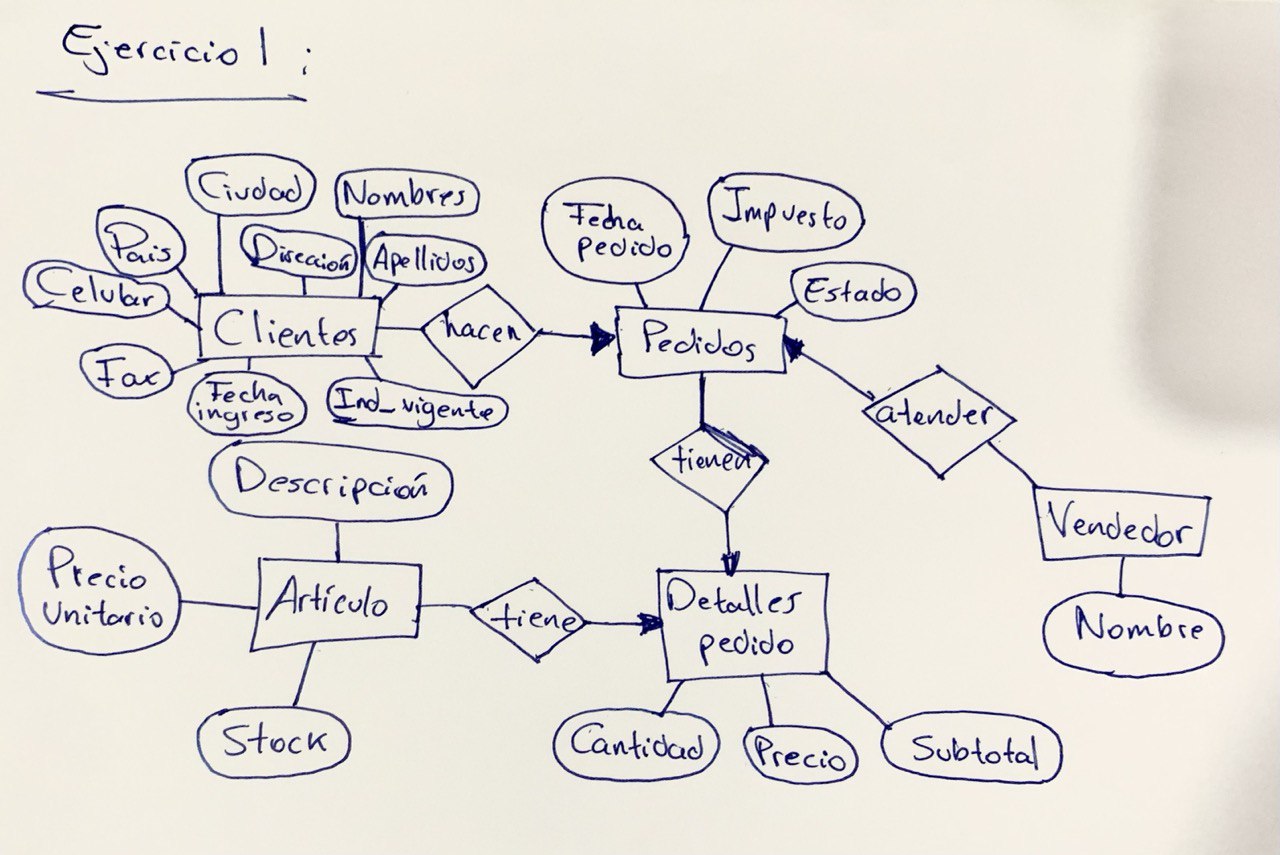 Ejercicio 1 :
Ciudad
Nombres
País
Dirección
Apellidos
Celular
Clientes
hacen
Fax
Fecha
ingreso
Ind_vigente
Fecha
pedido
Impuesto
Estado
Pedidos
atender
tienen
Vendedor
Nombre
Descripción
Precio
Unitario
Artículo
tiene
Detalles
pedido
Stock
Cantidad
Precio
Subtotal